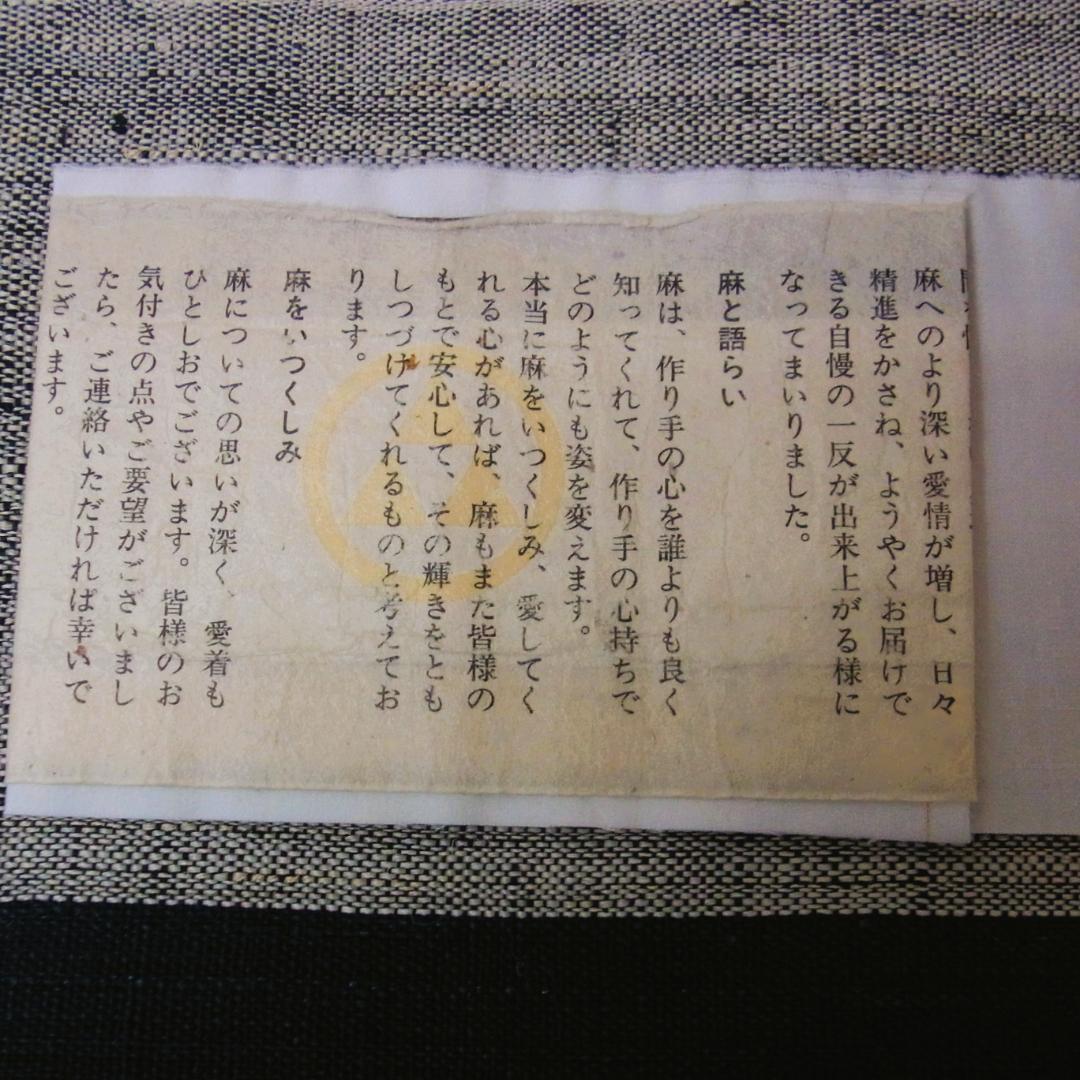 麻へのより深い愛情が増し、日々
精進をかさね、ようやくお届けで
きる自慢の一反が出来上がる様に
なってまいりました。
麻と語らい
麻は、作り手の心を誰よりも良く
知ってくれて、作り手の心持ちで
どのようにも姿を変えます。
本当に麻をいつくしみ、愛してく
れる心があれば、麻もまた皆様の
もとで安心して、その輝きをとも
しつづけてくれるものと考えてお
ります。
麻をいつくしみ
麻についての思いが深く、愛着も
ひとしおでございます。皆様のお
気付きの点やご要望がございまし
たら、ご連絡いただければ幸いで
ございます。